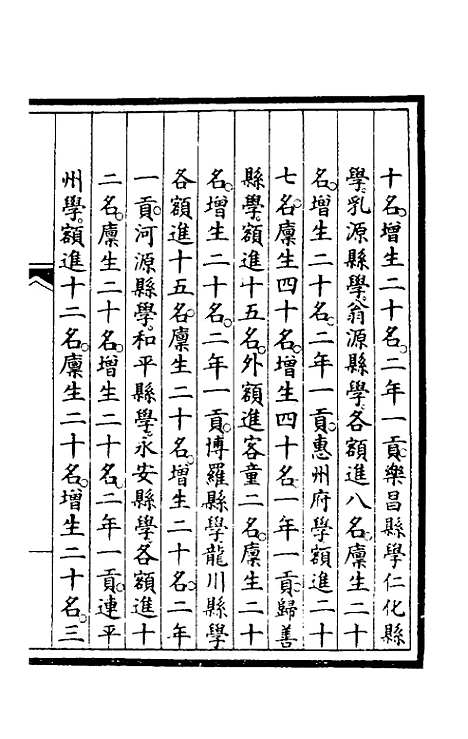 十名。增生二十名。二年一貢。樂昌縣學仁化縣
學。乳源縣學。翁源縣學。各額進八名。廪生二十
名。增生二十名。二年一貢。惠州府學額進二十
七名。廪生四十名。增生四十名一年一貢。歸善
縣學。額進十五名。外額進客童二名。廪生二十
名。增生二十名。二年一貢。博羅縣學龍川縣學
各額進十五名。廪生二十名。增生二十名。二年
一貢。河源縣學。和平縣學。永安縣學。各額進十
二名。廪生二十名。增生二十名。二年一貢。連平
州學。額進十二名。廪生二十名。增生二十名。三